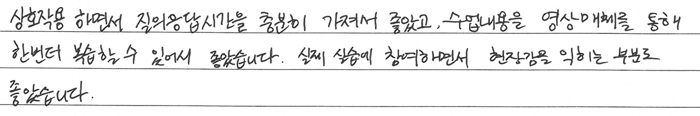 상호작용 하면서 질의응답시간을 충분히 가져서 좋았고, 수업내용을 영상매체를 통해
한번더 복습할 수 있어서 좋았습니다. 실제 실습에 참여하면서 현장감을 익히는 부분도
좋았습니다.